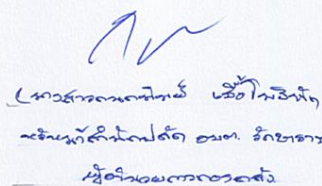 (นางสาวกนกทิพย์ เชื้อโพธิหัก
หัวหน้าสำนักปลัด อบต. รักษาราช
ผู้อำนวยการกองคลัง